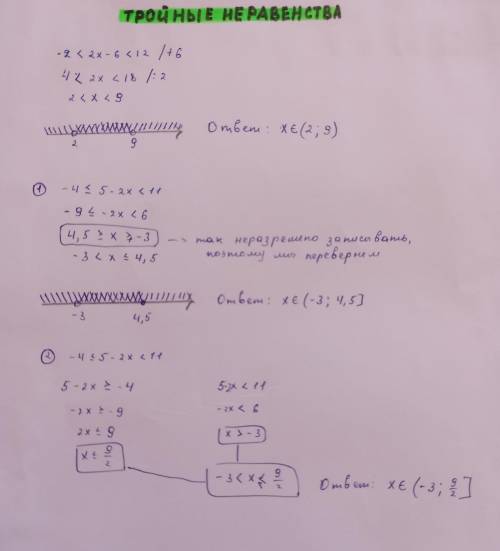 ТРОЙНЫЕ НЕРАВЕНСТВА
-2 < 2x-6 < 12 /+6
4 < 2x < 18 /:2
2 < x < 9
2 9 Ответ: x∈(2; 9)
① -4 ≤ 5-2x < 11
-9 ≤ -2x < 6
4,5 ≥ x > -3 -> так неразрешено записывать,
поэтому мы перевернем
-3 < x ≤ 4,5
-3 4,5 Ответ: x∈(-3; 4,5]
② -4 ≤ 5-2x < 11
5-2x ≥ -4 5-2x < 11
-2x ≥ -9 -2x < 6
2x ≤ 9 x > -3
x ≤ 9/2
-3 < x ≤ 9/2 Ответ: x∈(-3; 9/2]